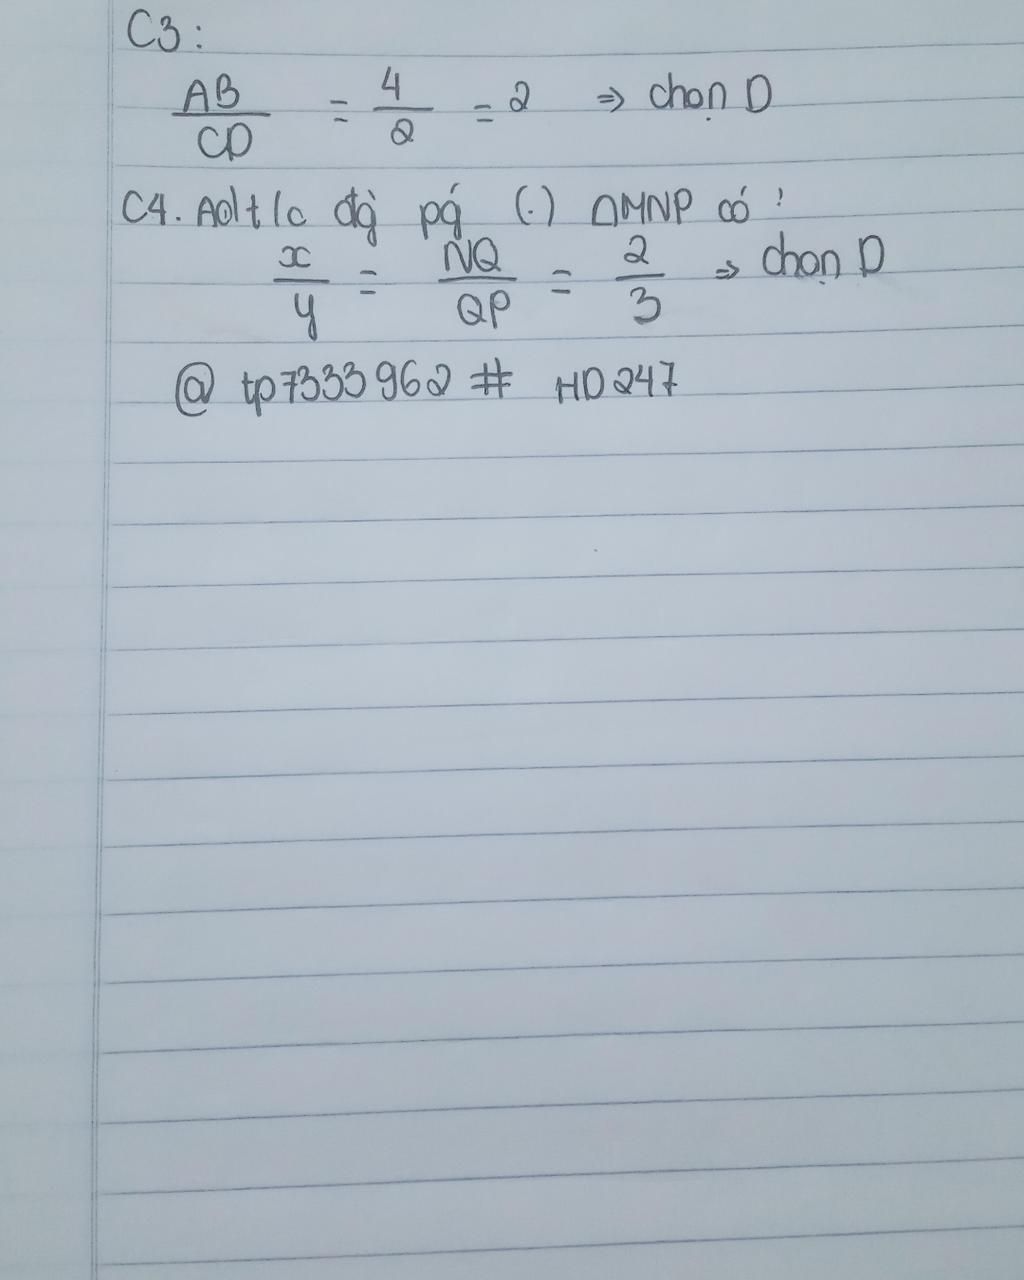 C3:
AB/CD = 4/2 = 2 ⇒ chọn D
C4. Adt/c đg̀ pǵ (.) △MNP có :
x/y = NQ/QP = 2/3 ⇒ chọn D
@ tp7333962 # HD247